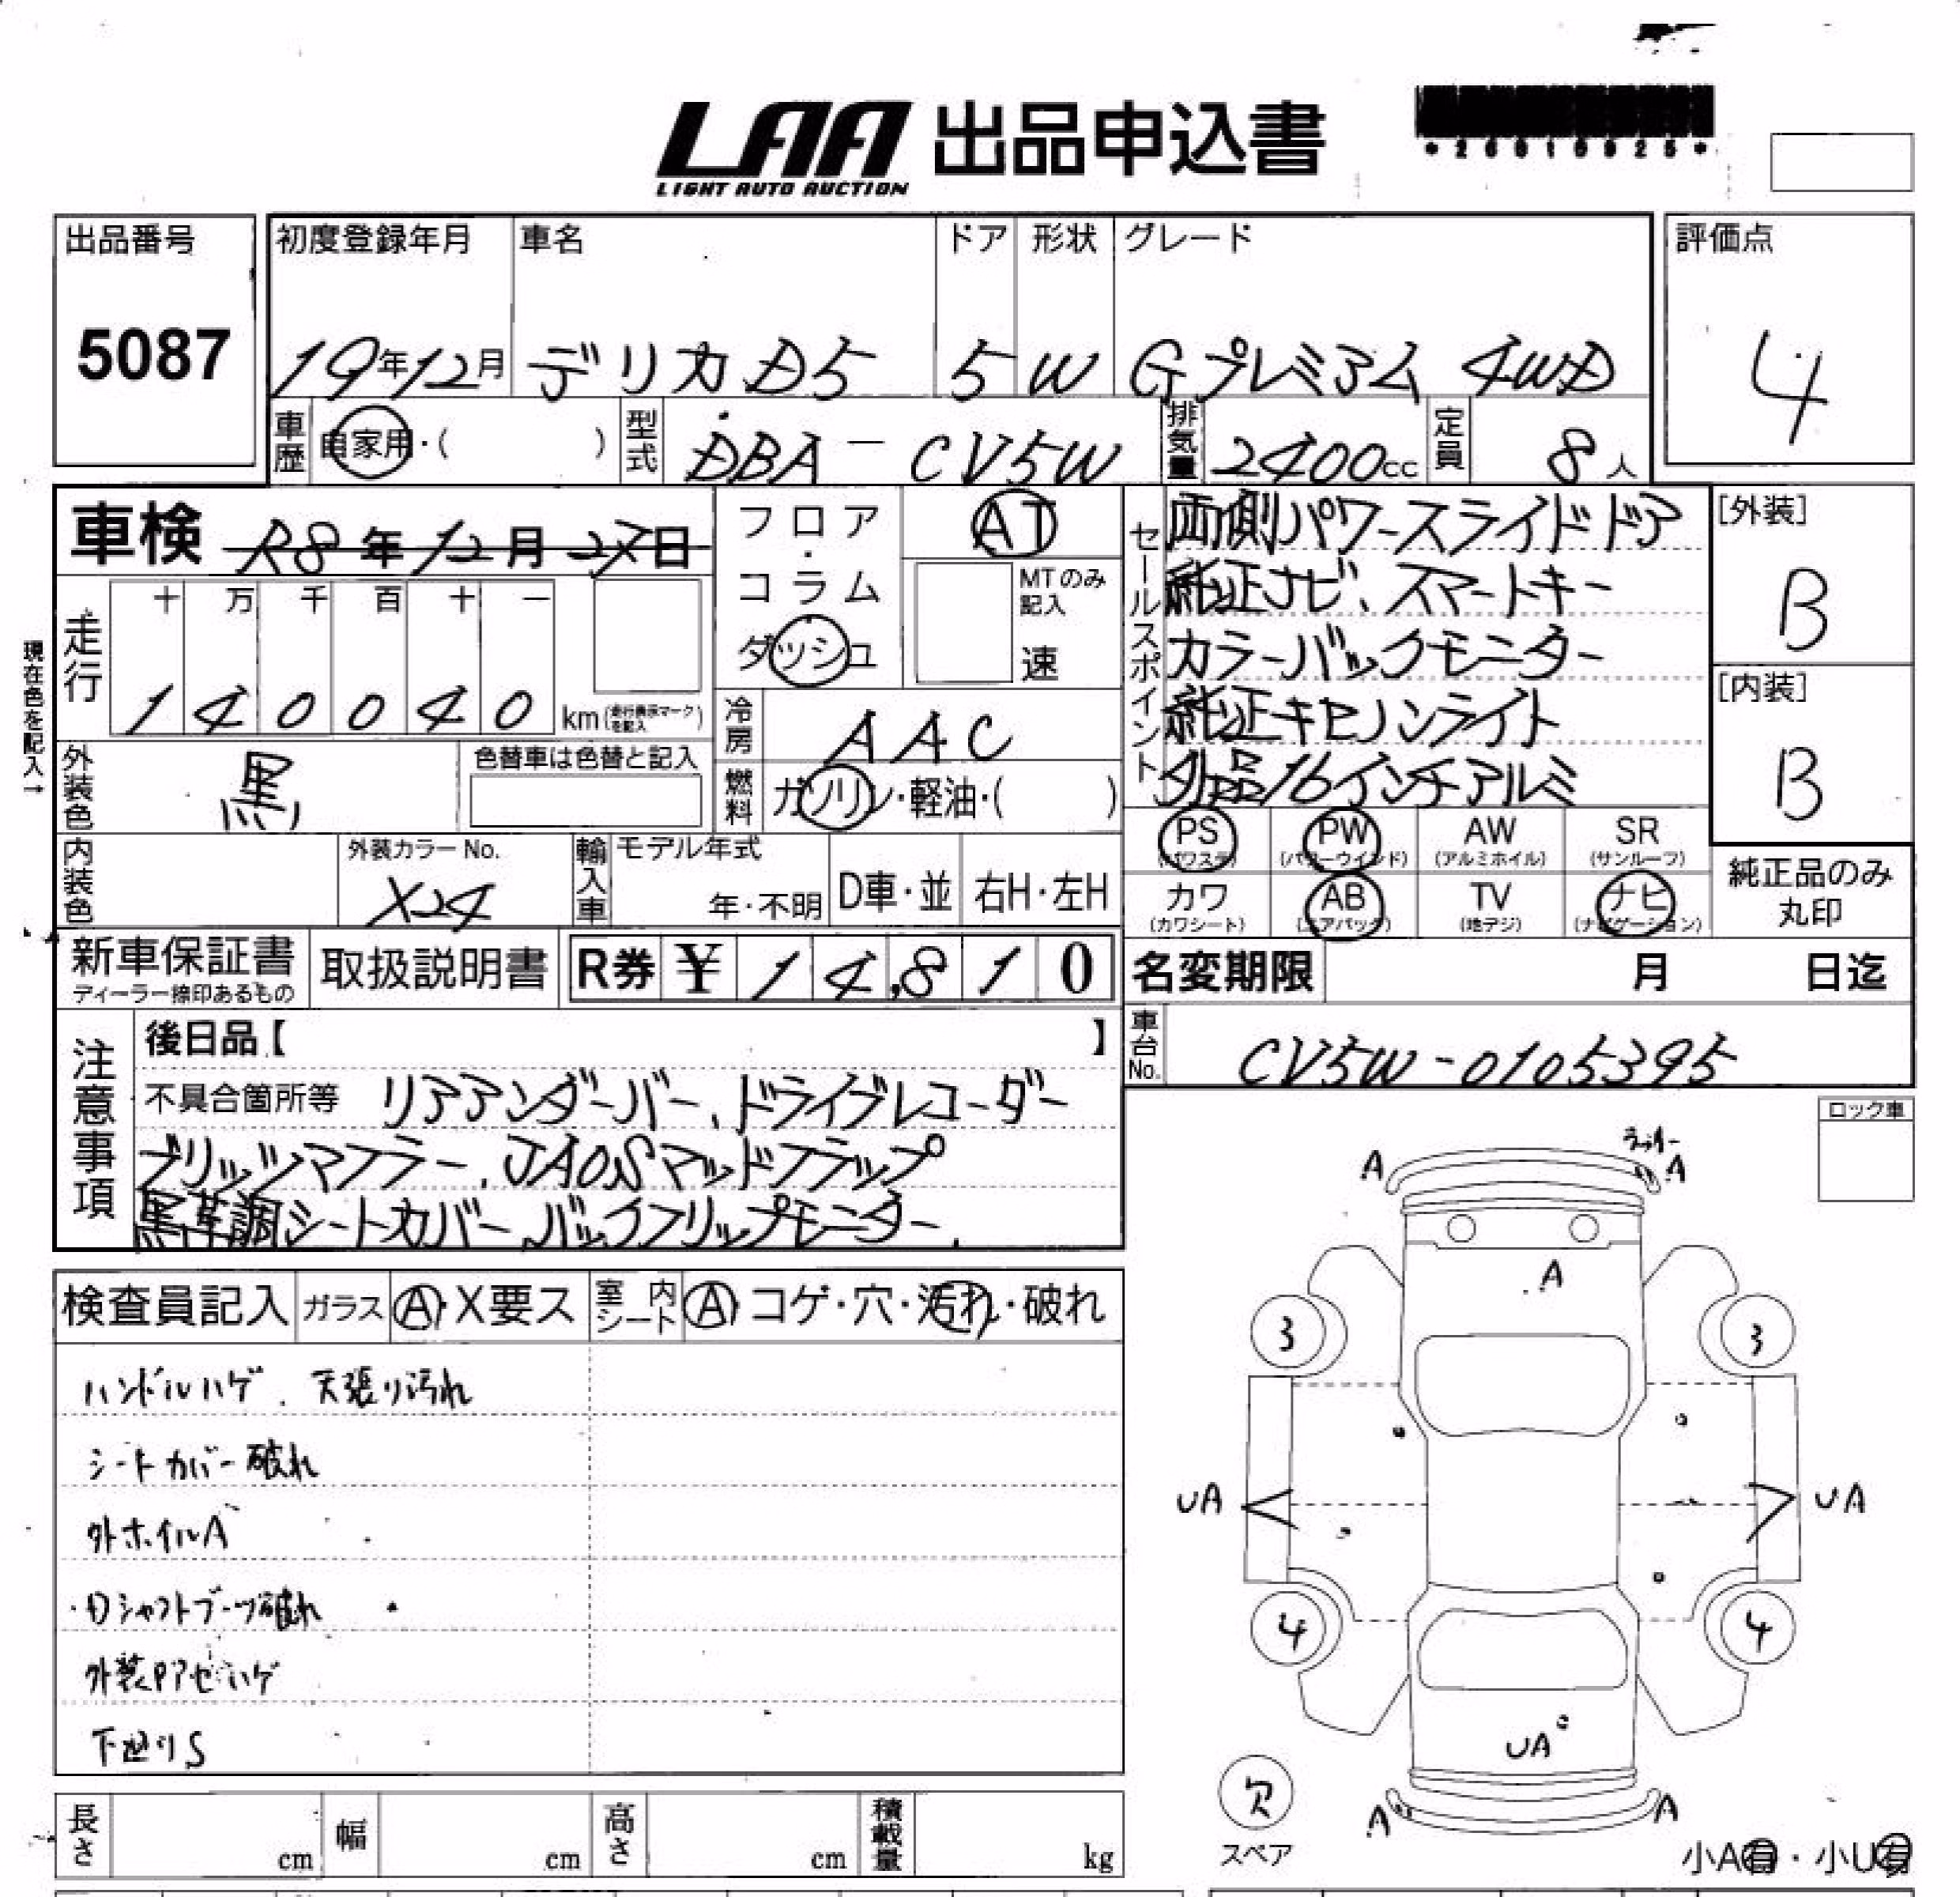 LAA 出品申込書
LIGHT AUTO AUCTION
*26010925*
出品番号 初度登録年月 車名 ドア 形状 グレード 評価点
5087 19年12月 デリカD5 5 W Gプレミアム 4WD 4
車歴 自家用・( ) 型式 DBA-CV5W 排気量 2400cc 定員 8人
車検 R8年12月27日
フロア・コラム・ダッシュ
AT
MTのみ記入
速
セールスポイント
両側パワースライドドア
純正ナビ、スマートキー
カラーバックモニター
純正キセノンライト
外品16インチアルミ
[外装]
B
[内装]
B
現在色を記入→
走行 十 万 千 百 十 一
1 4 0 0 4 0 km(走行表示マークを記入)
冷房 AAC
外装色 黒 色替車は色替と記入
燃料 ガソリン・軽油・( )
PS (パワステ) PW (パワーウインド) AW (アルミホイル) SR (サンルーフ)
カワ (カワシート) AB (エアバッグ) TV (地デジ) ナビ (ナビゲーション)
純正品のみ丸印
内装色 外装カラーNo. X24 輸入車 モデル年式 年・不明 D車・並 右H・左H
新車保証書 ディーラー捺印あるもの 取扱説明書 R券 ¥ 14,810
名変期限 月 日迄
車台No. CV5W-0105395
注意事項
後日品【 】
不具合箇所等 リアアンダーバー、ドライブレコーダー
ブリッツマフラー、JAOSマッドフラップ
黒革調シートカバー、バックフリップモニター
ロック車
検査員記入 ガラス A・X要ス 室内シート A・コゲ・穴・汚れ・破れ
ハンドルハゲ、天張り汚れ
シートカバー破れ
外ホイルA
Dシャフトブーツ破れ
外装Pアセ・ハゲ
下廻りS
A A
A
3 3
UA UA
4 4
UA
A A
欠
スペア
小A有・小U有
長さ cm 幅 cm 高さ cm 積載量 kg